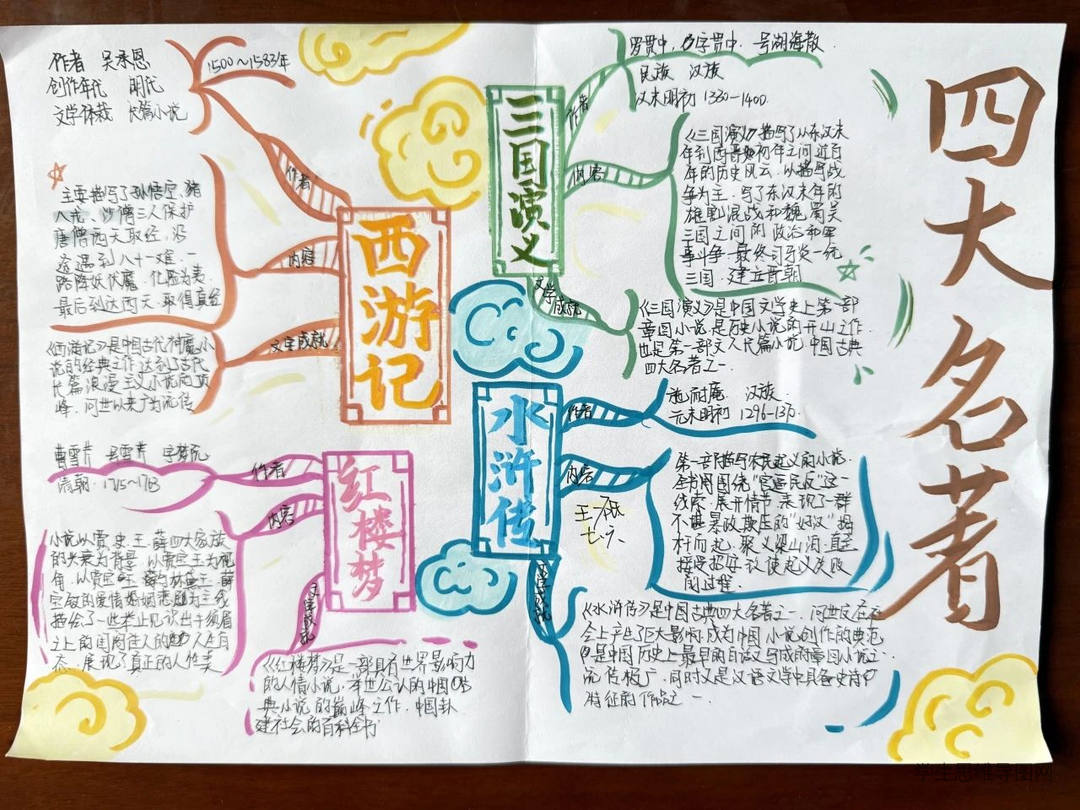 四大名著
三国演义
作者
罗贯中,名字贯中,号湖海散
民族 汉族
元末明初 1330—1400
内容
《三国演义》描写了从东汉末
年到西晋初年之间近百
年的历史风云,以描写战
争为主,写了东汉末年的
雄割混战和魏、蜀、吴
三国之间的政治和军
事斗争,最终司马炎一统
三国,建立晋朝
文学成就
《三国演义》是中国文学史上第一部
章回小说,是历史小说的开山之作,
也是第一部文人长篇小说,中国古典
四大名著之一
西游记
作者
作者 吴承恩
1500~1583年
创作年代 明代
文学体裁 长篇小说
内容
主要描写了孙悟空、猪
八戒、沙僧三人保护
唐僧西天取经,沿
途遇到八十一难,一
路降妖伏魔,化险为夷,
最后到达西天,取得真经
文学成就
《西游记》是中国古代神魔小
说的经典之作,达到了古代
长篇浪漫主义小说的顶
峰,问世以来广为流传
水浒传
作者
施耐庵 汉族
元末明初 1296—137
内容
第一部描写农民起义的小说.
全书用围绕"官逼民反"这一
线索展开情节,表现了一群
不堪暴政欺压的"好汉"揭
杆而起,聚义梁山泊,直至
接受招安致使起义失败
的过程.
王
七.六
文学成就
《水浒传》是中国古典四大名著之一,问世后在社
会上产生了巨大影响,成为中国小说创作的典范
是中国历史上最早用白话文写成的章回小说之一
流传极广,同时又是汉语文学中具备史诗
特征的作品之一
红楼梦
作者
曹雪芹 号雪芹 字梦阮
清朝:1715~1763
内容
小说以贾、史、王、薛四大家族
的兴衰为背景,以贾宝玉为视
角,以贾宝玉与林黛玉、薛
宝钗的爱情婚姻悲剧为主线
描绘了一些举止见识出于须眉
之上的闺阁佳人的人生百
态,展现了真正的人性美
文学成就
《红楼梦》是一部具有世界影响力
的人情小说,举世公认的中国古
典小说的巅峰之作,中国封
建社会的百科全书
学生思维导图网